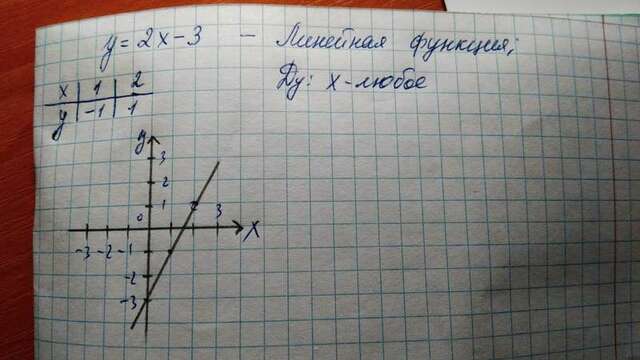 y = 2x - 3 - Линейная функция;
Dy: x - любое
x 1 2
y -1 1
y
3
2
1
0
3 x
-3 -2 -1
-2
-3